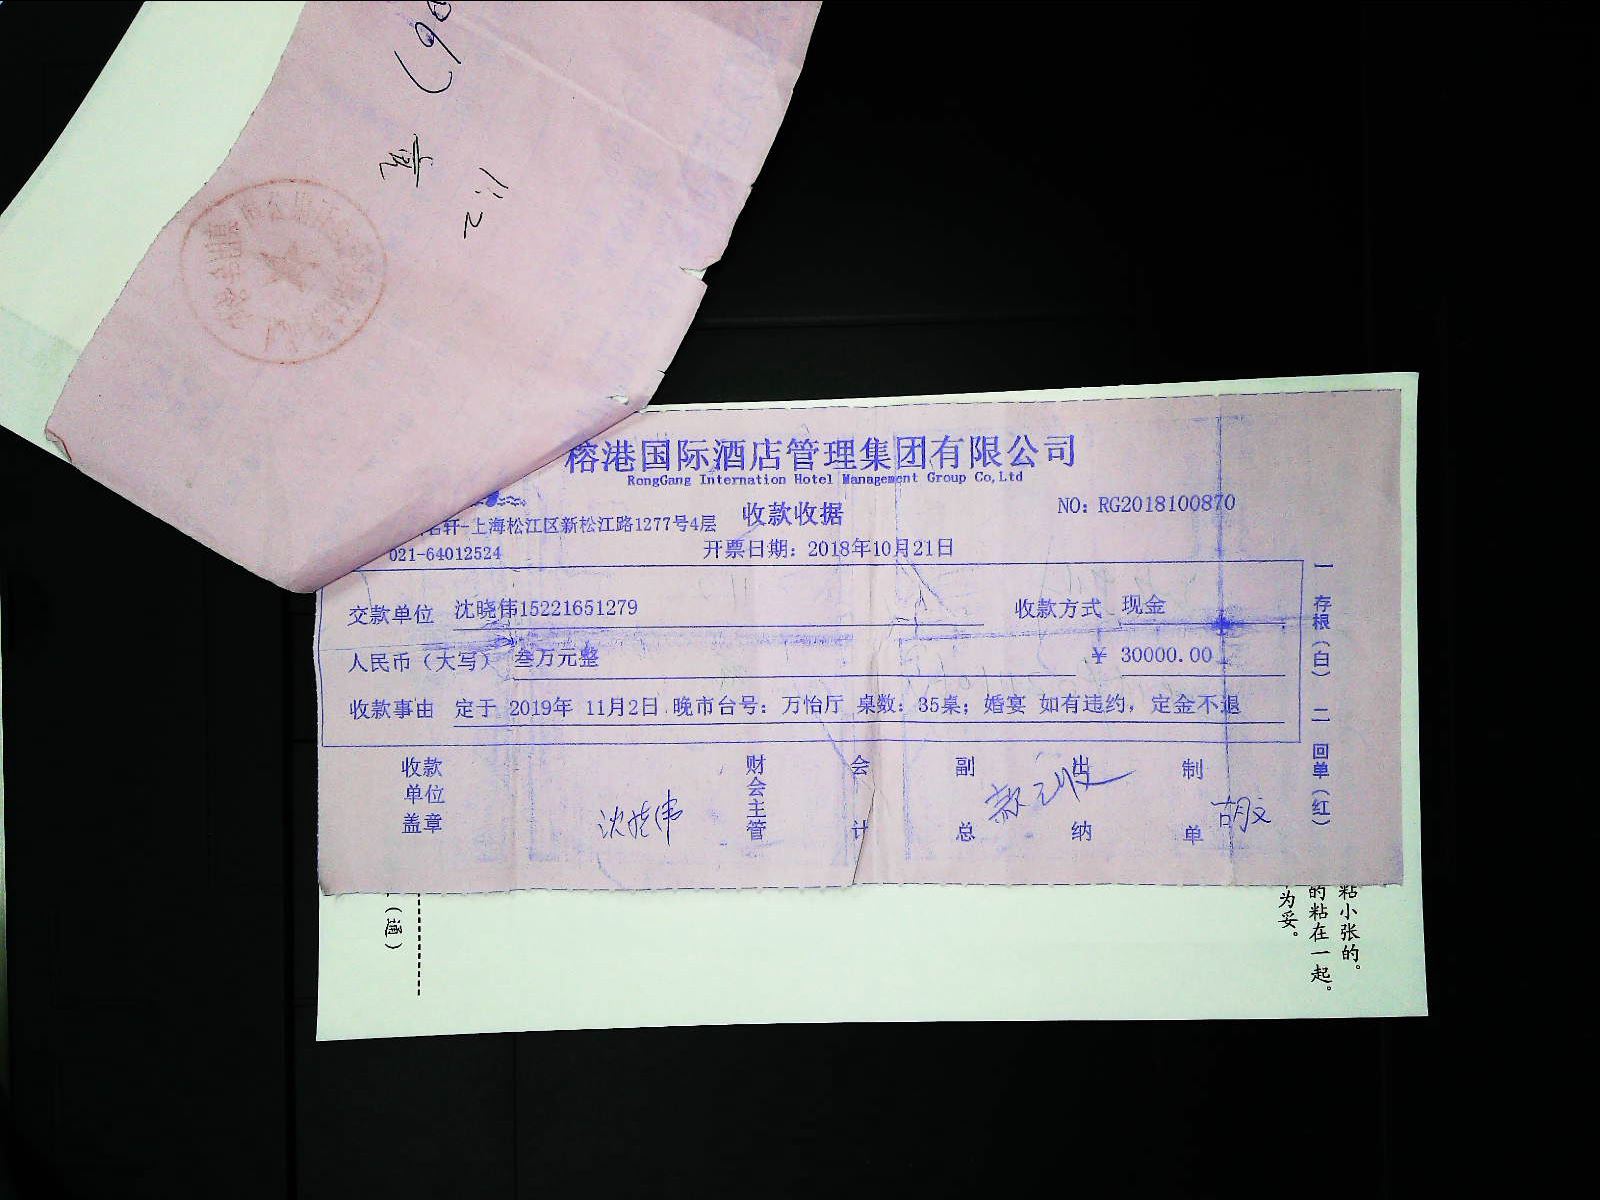 榕港国际酒店管理集团有限公司
RongGang Internation Hotel Management Group Co,Ltd
收款收据
NO: RG2018100870
名轩-上海松江区新松江路1277号4层
021-64012524
开票日期: 2018年10月21日
交款单位 沈晓伟15221651279 收款方式 现金
人民币(大写) 叁万元整 ¥ 30000.00
收款事由 定于 2019年 11月2日 晚市台号: 万怡厅 桌数: 35桌; 婚宴 如有违约, 定金不退
收款单位盖章
沈晓伟
财会主管
会计
副总
出纳
制单
胡文
一 存根(白) 二 回单(红)
(通)
粘小张的。
的粘在一起。
为妥。